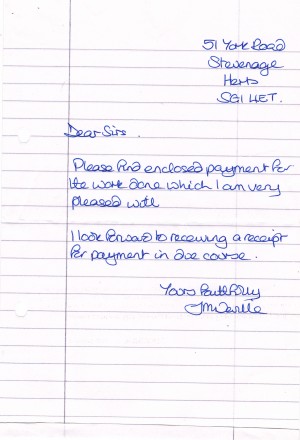 51 York Road
Stevenage
Herts
SG1 4ET.
Dear Sirs.
Please find enclosed payment for
the work done which I am very
pleased with
I look forward to receiving a receipt
for payment in due course.
Yours faithfully